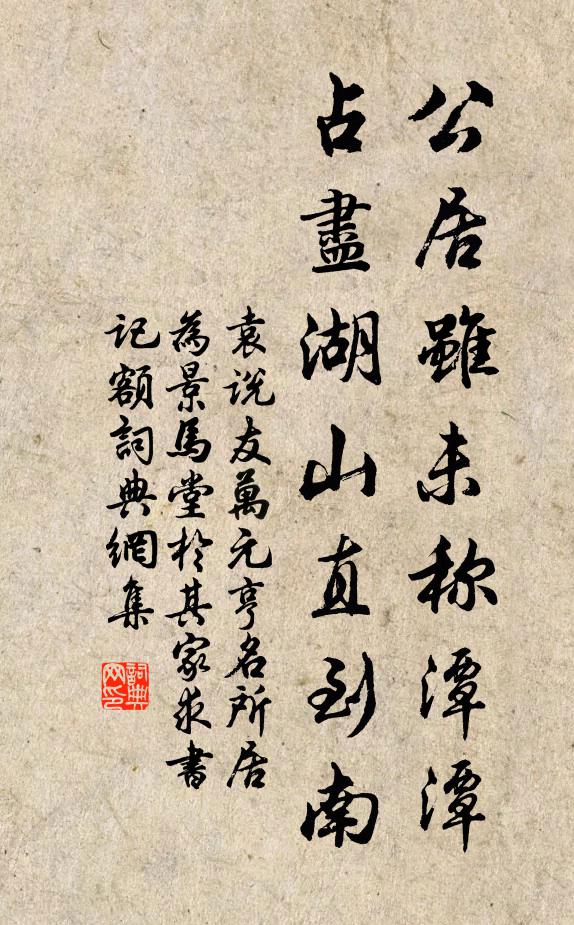 公居雖未称潭潭
占盡湖山直到南
袁説友萬元亨名所居
為景馬堂於其家求書
記額詞典網集
詞典网印